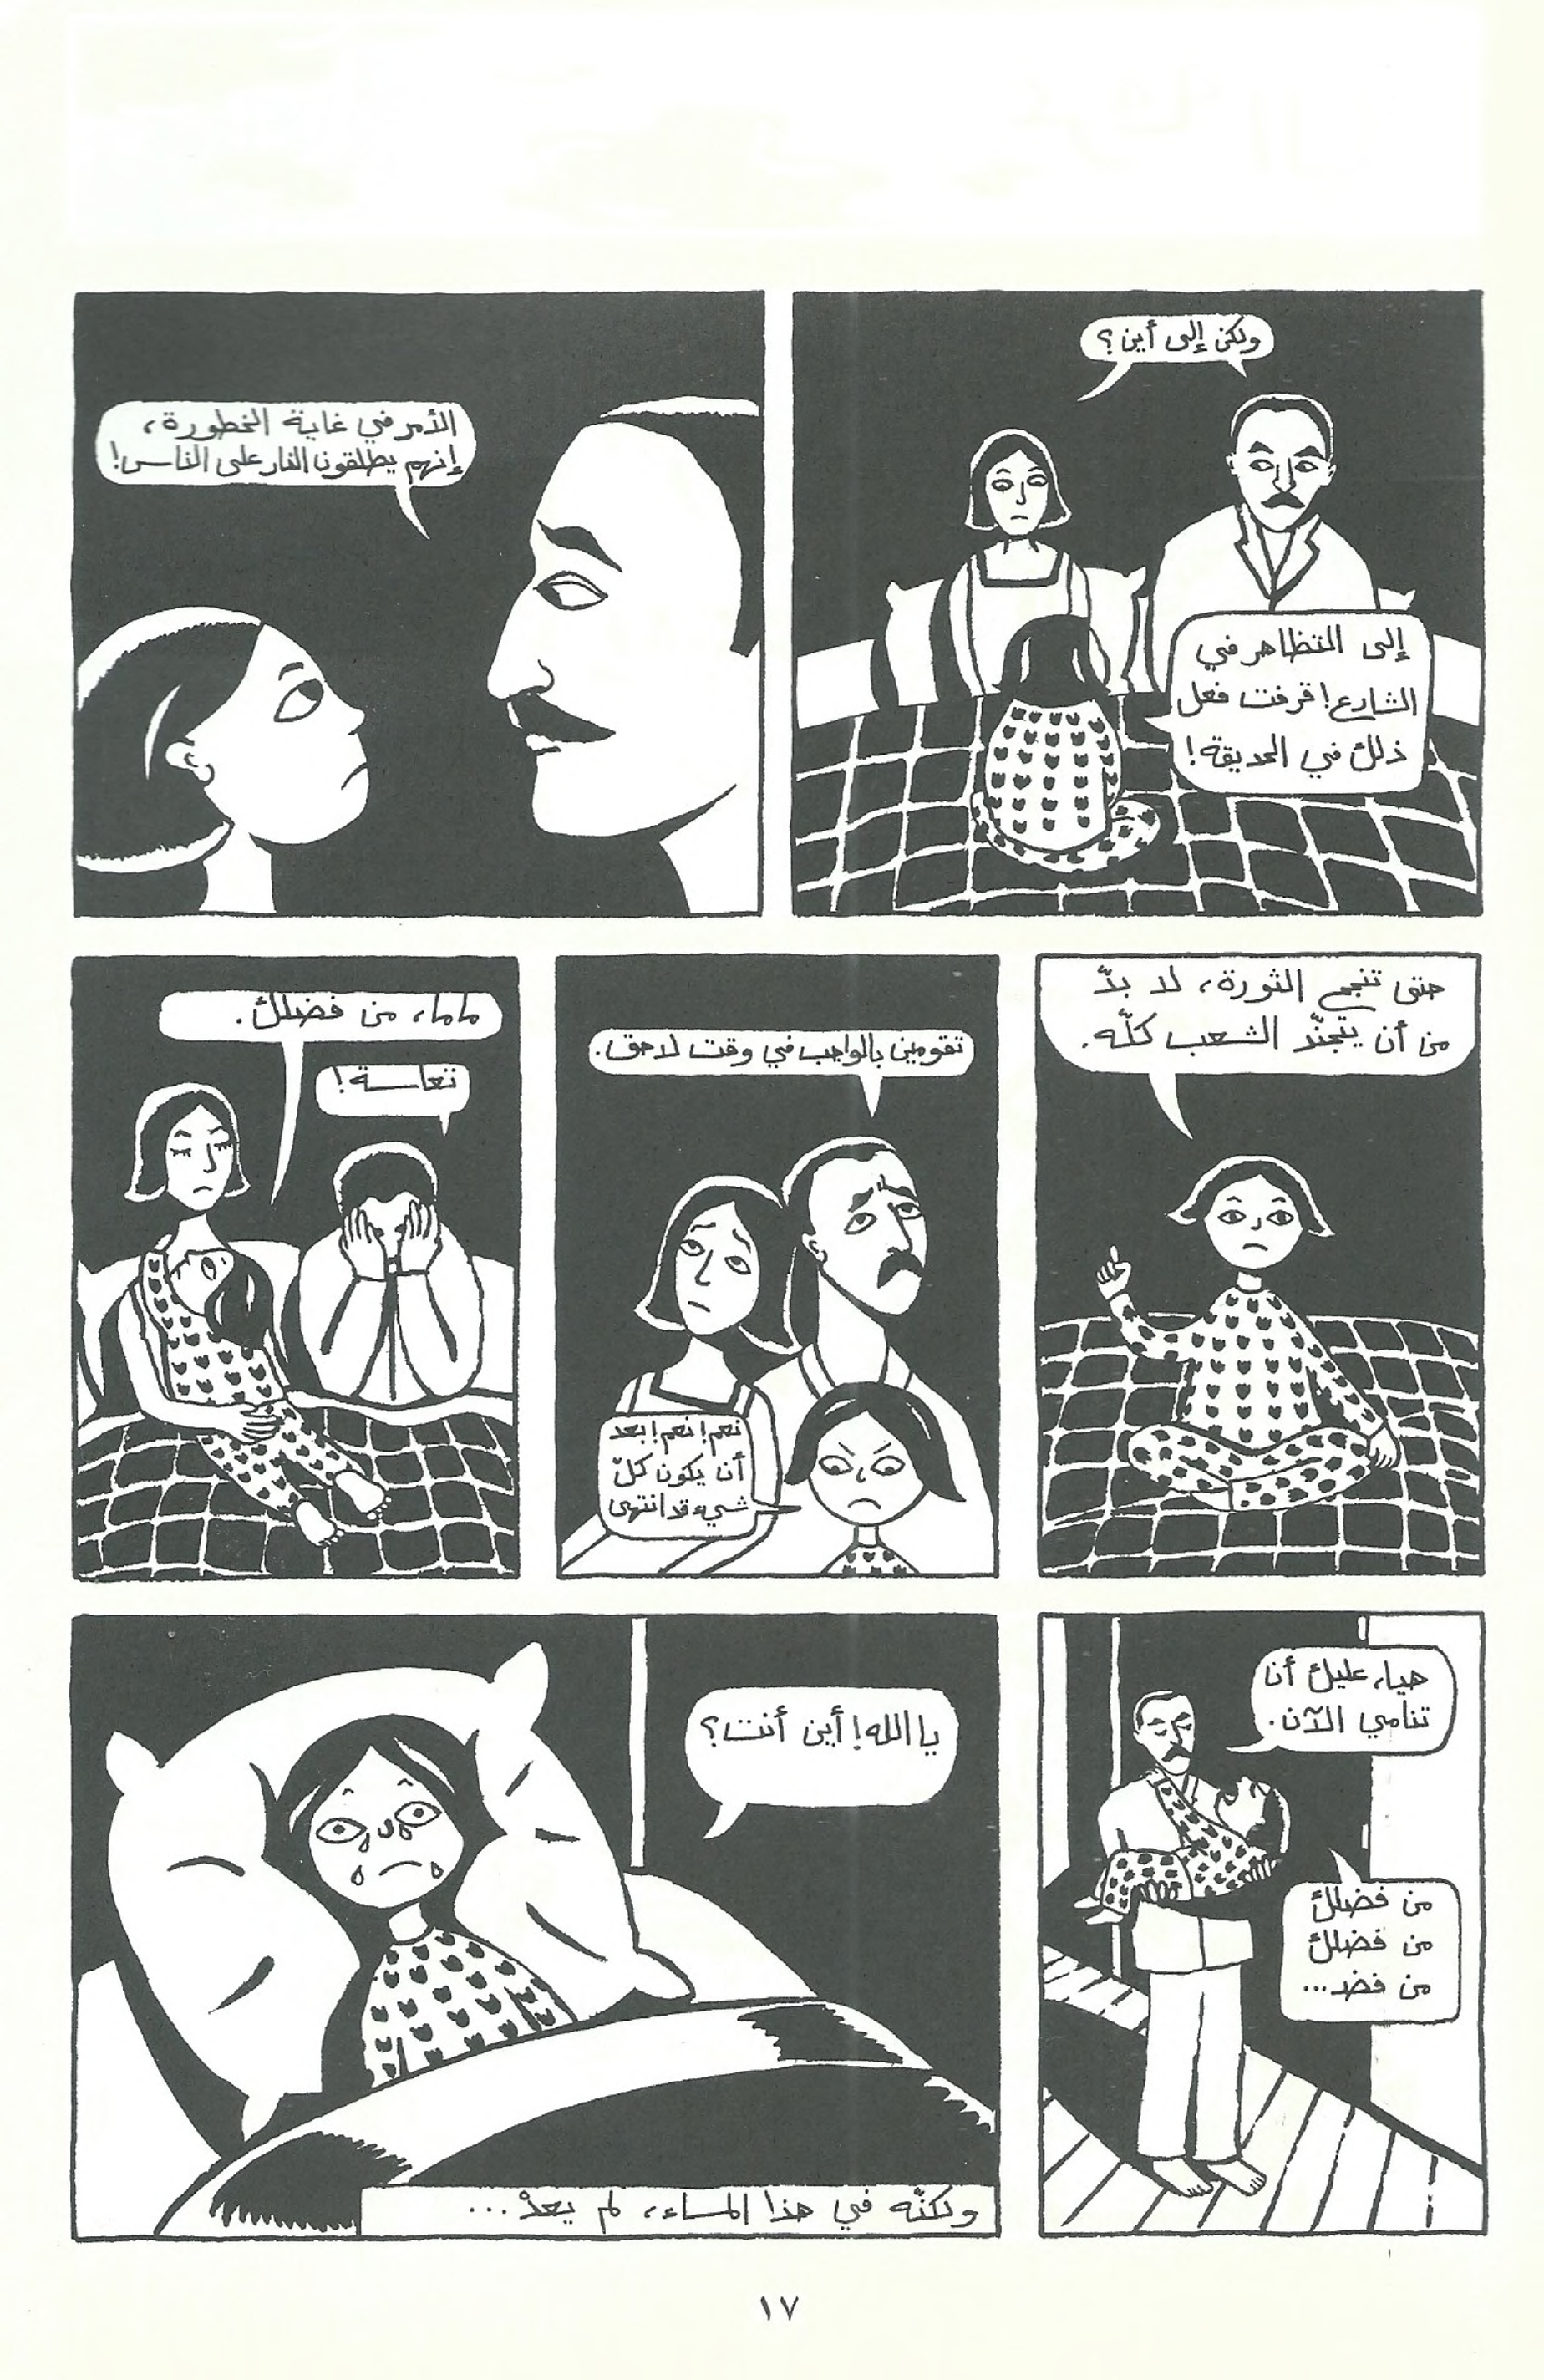 ولكن إلى أين؟
إلى التظاهر في
الشارع! قرفت فعل
ذلك في الحديقة!
الأمر في غاية الخطورة،
إنهم يطلقون النار على الناس!
حتى تنجح الثورة، لا بدّ
من أن يتجنّد الشعب كلّه.
تقومين بالواجب في وقت لاحق.
نعم! نعم! بعد
أن يكون كلّ
شيء قد انتهى
ماما، من فضلك.
تعاسة!
هيا، عليك أن
تنامي الآن.
من فضلك
من فضلك
من فضد...
يا الله! أين أنت؟
ولكنّه في هذا المساء، لم يعدْ...
١٧